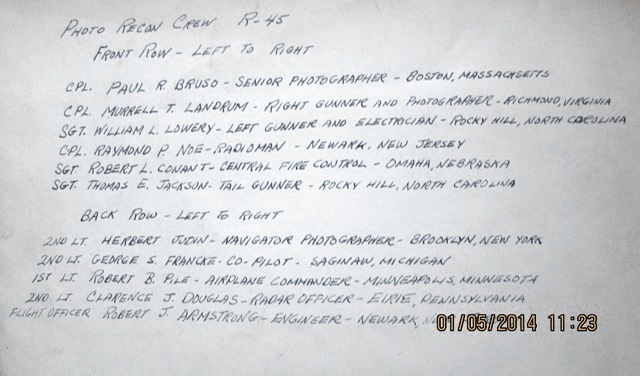 PHOTO RECON CREW R-45
FRONT ROW - LEFT TO RIGHT
CPL. PAUL R. BRUSO - SENIOR PHOTOGRAPHER - BOSTON, MASSACHSETTS
CPL. MURRELL T. LANDRUM - RIGHT GUNNER AND PHOTOGRAPHER - RICHMOND, VIRGINIA
SGT. WILLIAM L. LOWERY - LEFT GUNNER AND ELECTRICIAN - ROCKY HILL, NORTH CAROLINA
CPL. RAYMOND P. NOE - RADIOMAN - NEWARK, NEW JERSEY
SGT ROBERT L. CONANT - CENTRAL FIRE CONTROL - OMAHA, NEBRASKA
SGT. THOMAS E. JACKSON - TAIL GUNNER - ROCKY HILL, NORTH CAROLINA
BACK ROW - LEFT TO RIGHT
2ND LT. HERBERT JUDIN - NAVIGATOR PHOTOGRAPHER - BROOKLYN, NEW YORK
2ND LT. GEORGE S. FRANCKE - CO-PILOT - SAGINAW, MICHIGAN
1ST LT. ROBERT B. PILE - AIRPLANE COMMANDER - MINNEAPOLIS, MINNESOTA
2ND LT. CLARENCE J. DOUGLAS - RADAR OFFICER - EIRIE, PENNSYLVANIA
FLIGHT OFFICER ROBERT J. ARMSTRONG - ENGINEER - NEWARK,
01/05/2014 11:23